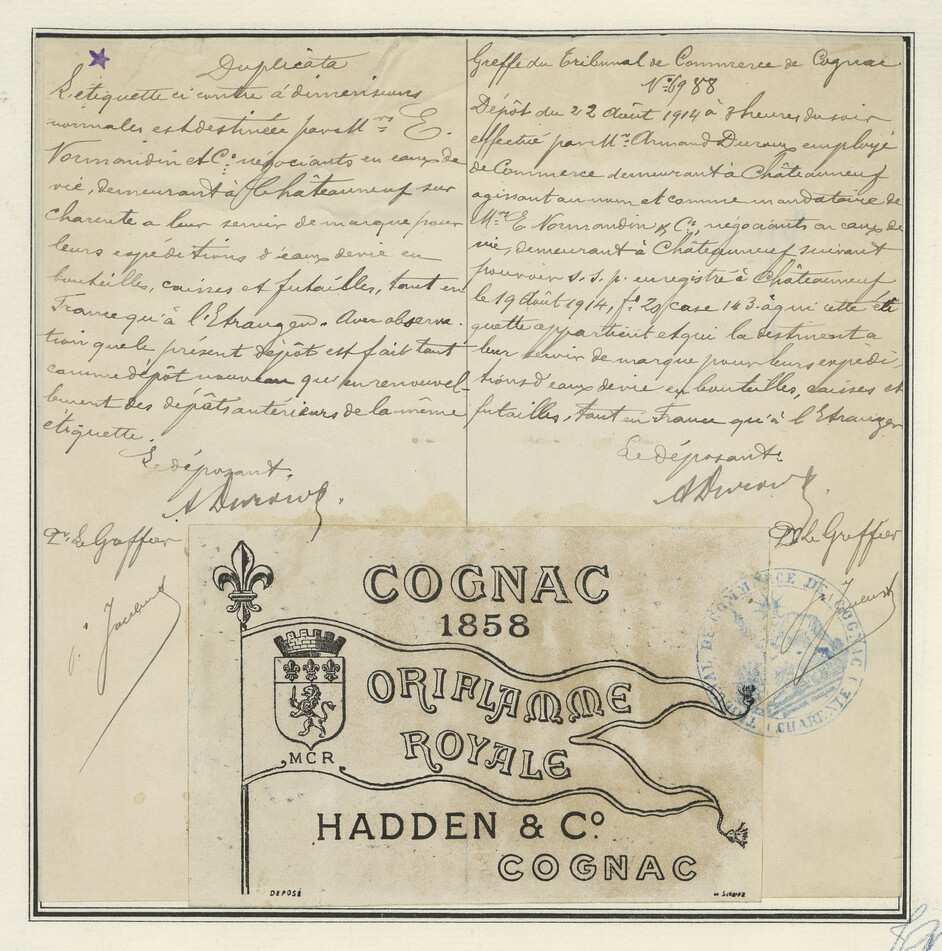 Duplicata
L'étiquette ci contre à dimensions
normales est destinée par MMrs E.
Normandin et Cie négociants en eaux de
vie, demeurant à Châteauneuf sur
charente a leur servir de marque pour
leurs expéditions d'eaux de vie en
bouteilles, caisses et futailles, tant en
France qu'à l'Etranger. Avec observa-
tion que le présent dépôt est fait tant
comme dépôt nouveau qu'en renouvel-
lement des dépôts antérieurs de la même
étiquette.
Le déposant.
Pr. Le Greffier
Greffe du Tribunal de Commerce de Cognac
No 6988
Dépôt du 22 Août 1914 à 3 heures du soir
effectué par Mr. Armand Duroux employé
de Commerce demeurant à Châteauneuf
agissant au nom et comme mandataire de
MMrs E Normandin & Cie, négociants en eaux de
vie, demeurant à Châteauneuf suivant
pouvoir s.s.p. enregistré à Châteauneuf
le 19 Août 1914, fo 20 case 143. à qui cette éti
quette appartient et qui la destinent à
leur servir de marque pour leurs expédi-
tions d'eaux de vie en bouteilles, caisses et
futailles, tant en France qu'à l'Etranger
Le déposant.
Pr Le Greffier
COGNAC
1858
ORIFLAMME
ROYALE
MCR
HADDEN & Co.
COGNAC
DEPOSÉ
TRIBUNAL DE COMMERCE DE COGNAC (CHARENTE)